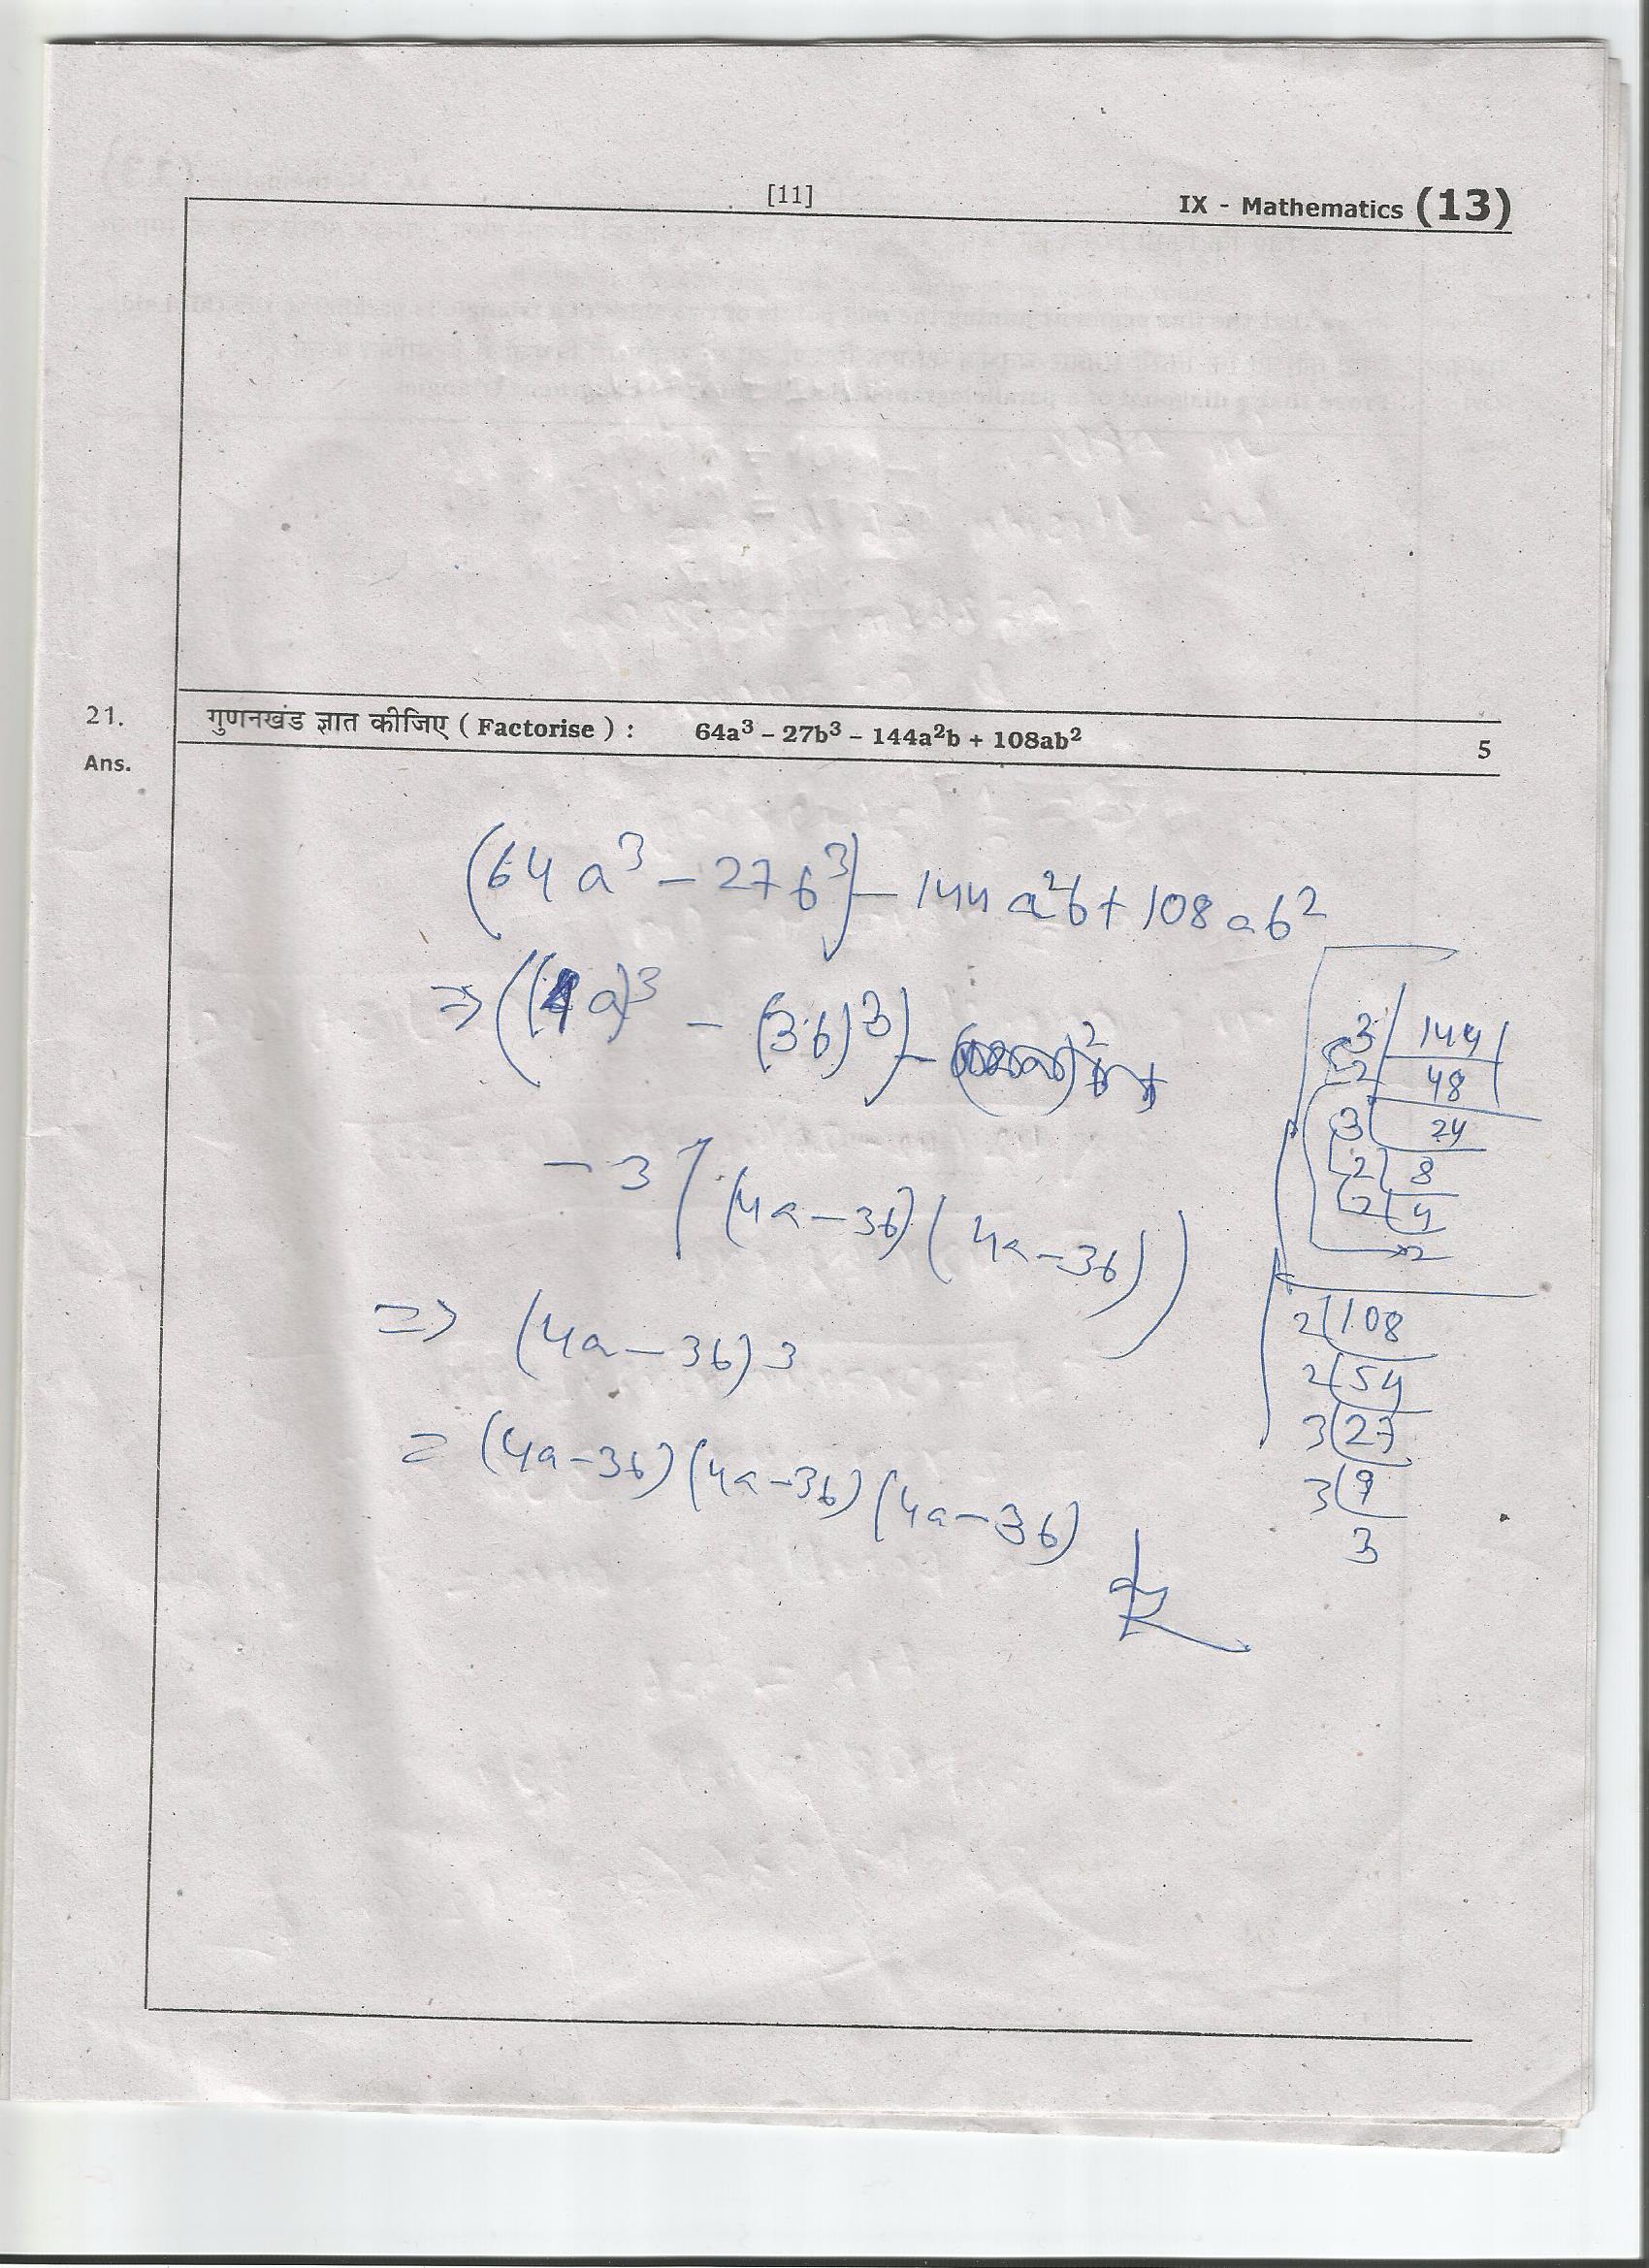 [11]
IX - Mathematics (13)
21. गुणनखंड ज्ञात कीजिए ( Factorise ) : 64a³ – 27b³ – 144a²b + 108ab² 5
Ans.
(64a³ – 27b³) – 144a²b + 108ab²
⇒ ((4a)³ – (3b)³) –
– 3 [(4a – 3b) (4a – 3b))
⇒ (4a – 3b)3
= (4a – 3b) (4a – 3b) (4a – 3b)
3 144
2 48
3 24
2 8
2 4
2
2 108
2 54
3 27
3 9
3